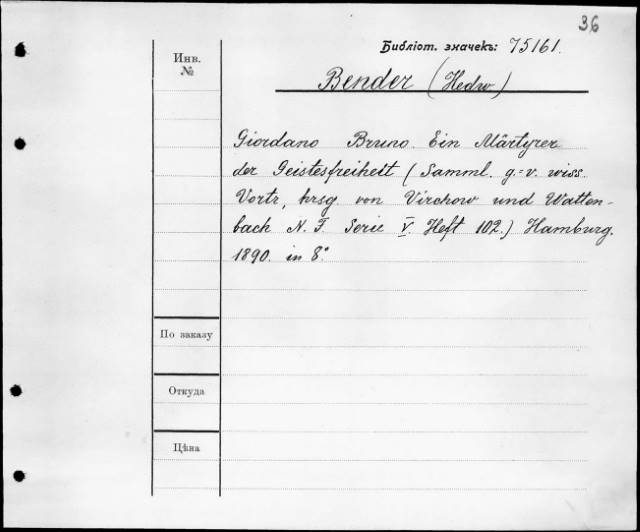 36
Библіот. значекъ: 75161.
Инв.
№
Bender (Hedw)
Giordano Bruno. Ein Märtyrer
der Geistesfreiheit (Samml. g.=v. wiss.
Vortr, hrsg von Virchow und Watten-
bach N. F. Serie V. Heft 102.) Hamburg.
1890. in 8°
По заказу
Откуда
Цѣна